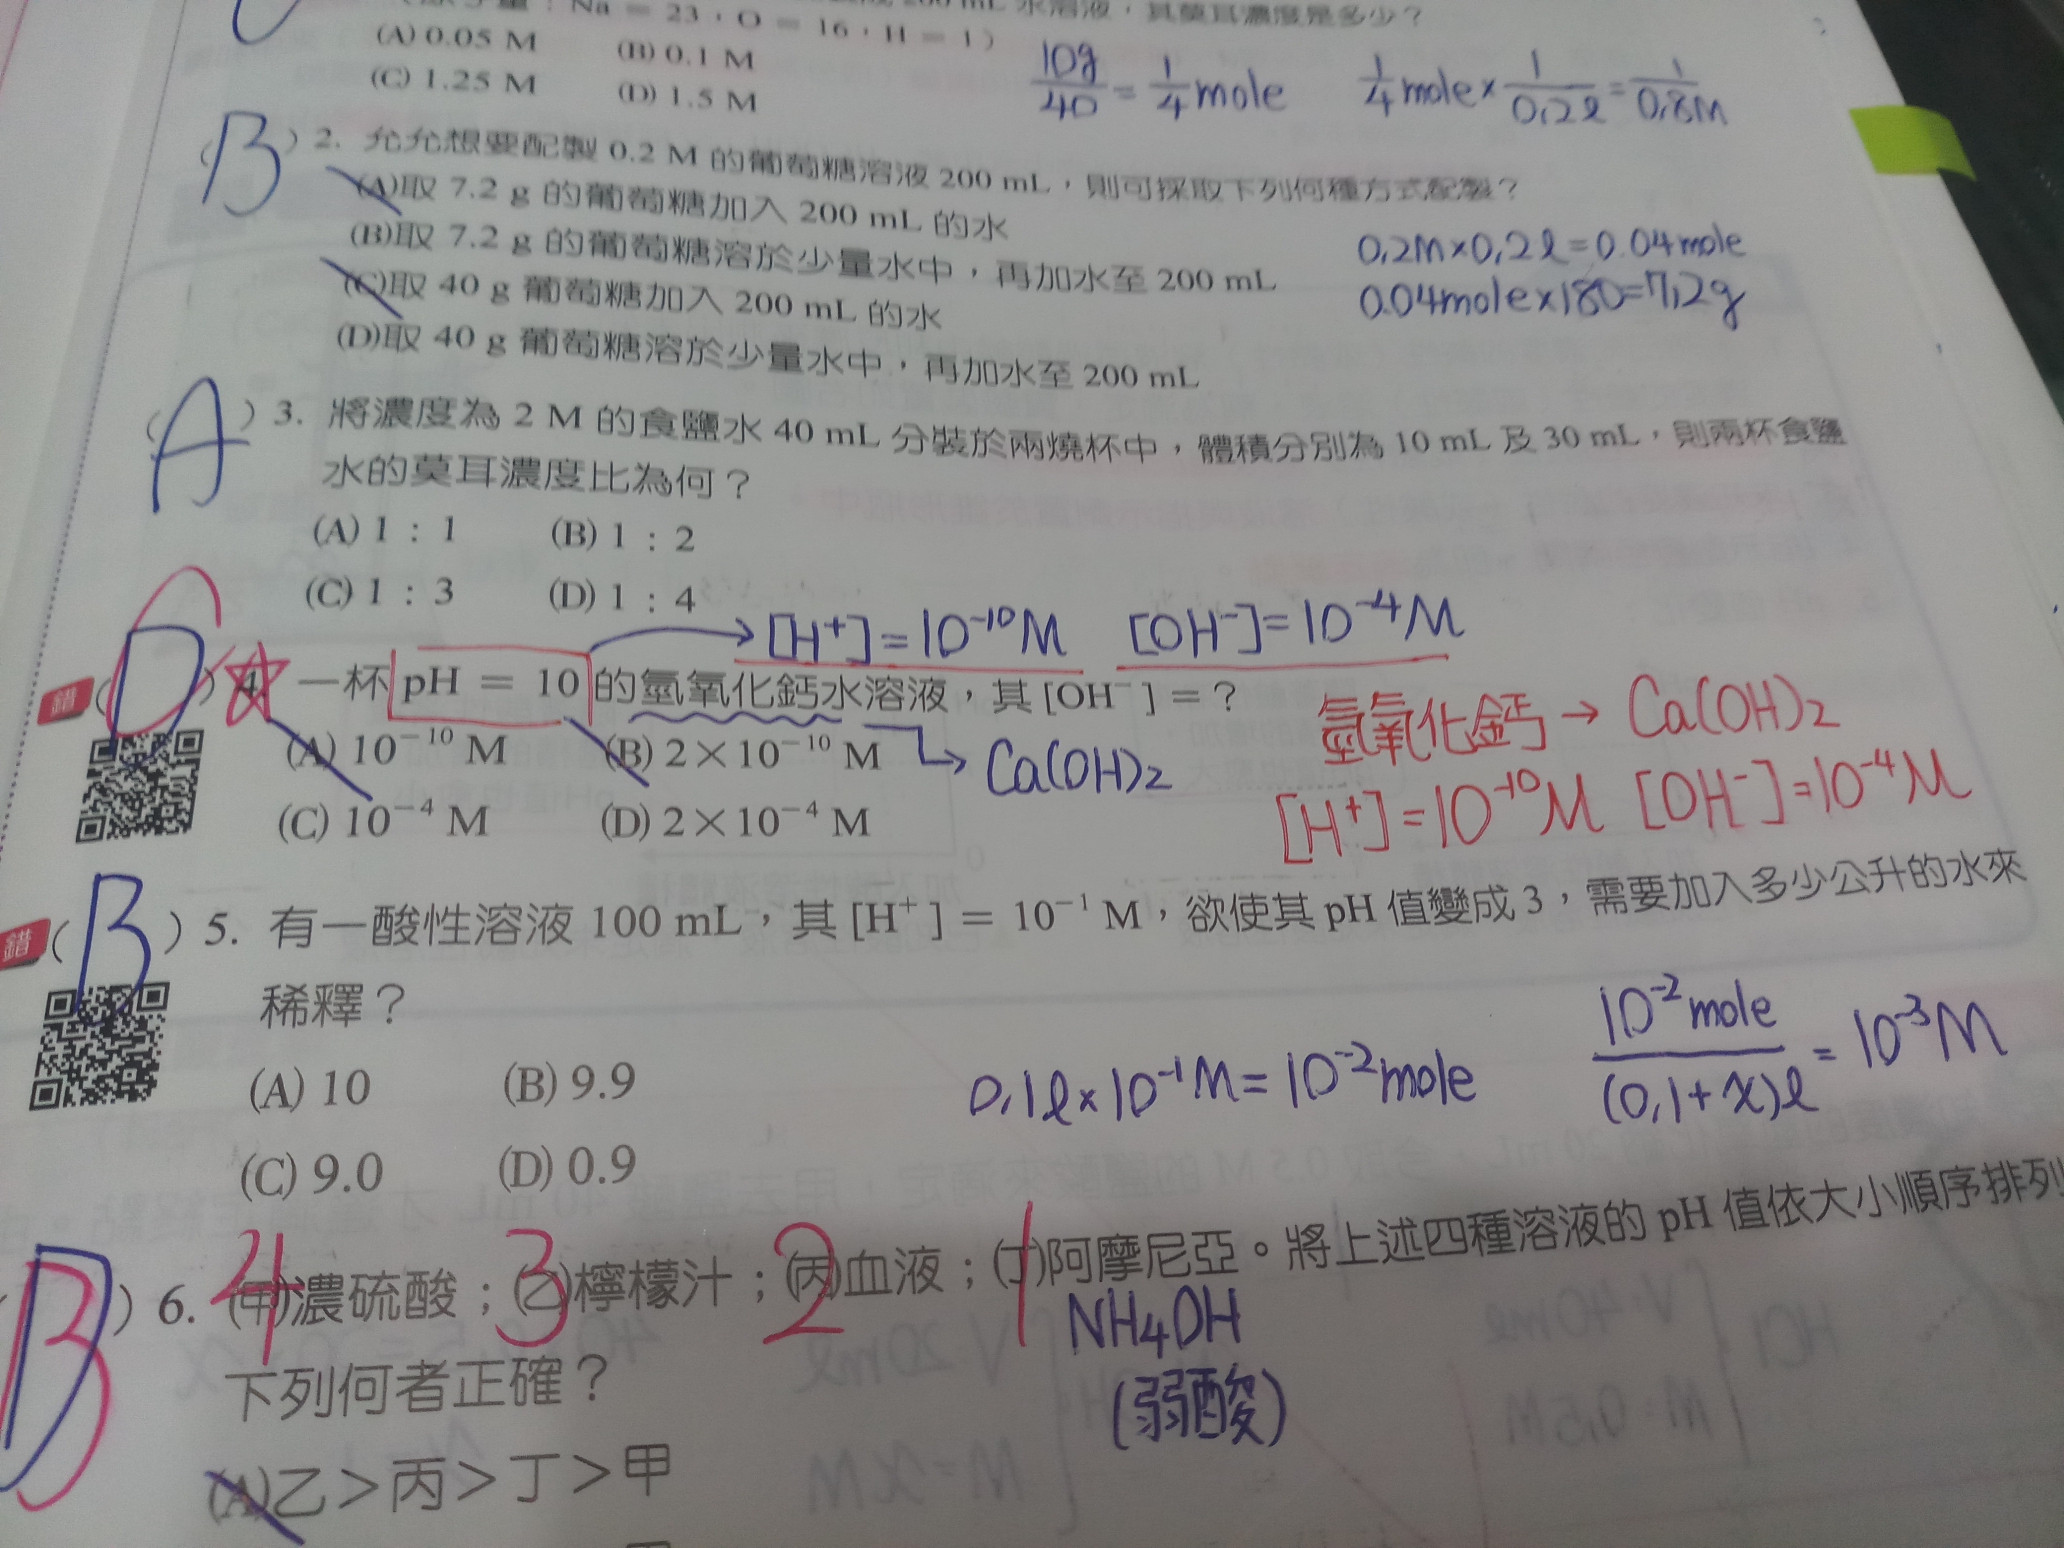 量:Na = 23,O = 16,H = 1)
200 mL 水溶液,其莫耳濃度是多少?
(A) 0.05 M (B) 0.1 M
(C) 1.25 M (D) 1.5 M
10g/40 = 1/4 mole 1/4 mole × 1/0.2l = 1/0.8M
(B) 2. 允允想要配製 0.2 M 的葡萄糖溶液 200 mL,則可採取下列何種方式配製?
(A)取 7.2 g 的葡萄糖加入 200 mL 的水
(B)取 7.2 g 的葡萄糖溶於少量水中,再加水至 200 mL
(C)取 40 g 葡萄糖加入 200 mL 的水
(D)取 40 g 葡萄糖溶於少量水中,再加水至 200 mL
0.2M×0.2l=0.04mole
0.04mole×180=7.2g
(A) 3. 將濃度為 2 M 的食鹽水 40 mL 分裝於兩燒杯中,體積分別為 10 mL 及 30 mL,則兩杯食鹽
水的莫耳濃度比為何?
(A) 1:1 (B) 1:2
(C) 1:3 (D) 1:4
[H⁺]=10⁻¹⁰M [OH⁻]=10⁻⁴M
錯 (D) 4. 一杯 pH = 10 的氫氧化鈣水溶液,其 [OH⁻] = ?
(A) 10⁻¹⁰ M (B) 2×10⁻¹⁰ M
Ca(OH)2
(C) 10⁻⁴ M (D) 2×10⁻⁴ M
氫氧化鈣→Ca(OH)2
[H⁺]=10⁻¹⁰M [OH⁻]=10⁻⁴M
錯 (B) 5. 有一酸性溶液 100 mL,其 [H⁺] = 10⁻¹ M,欲使其 pH 值變成 3,需要加入多少公升的水來
稀釋?
(A) 10 (B) 9.9
(C) 9.0 (D) 0.9
0.1l×10⁻¹M=10⁻²mole 10⁻²mole/(0.1+x)l = 10⁻³M
4 3 2 1
(B) 6. (甲)濃硫酸;(乙)檸檬汁;(丙)血液;(丁)阿摩尼亞。將上述四種溶液的 pH 值依大小順序排列
NH4OH
下列何者正確?
(弱酸)
(A)乙>丙>丁>甲